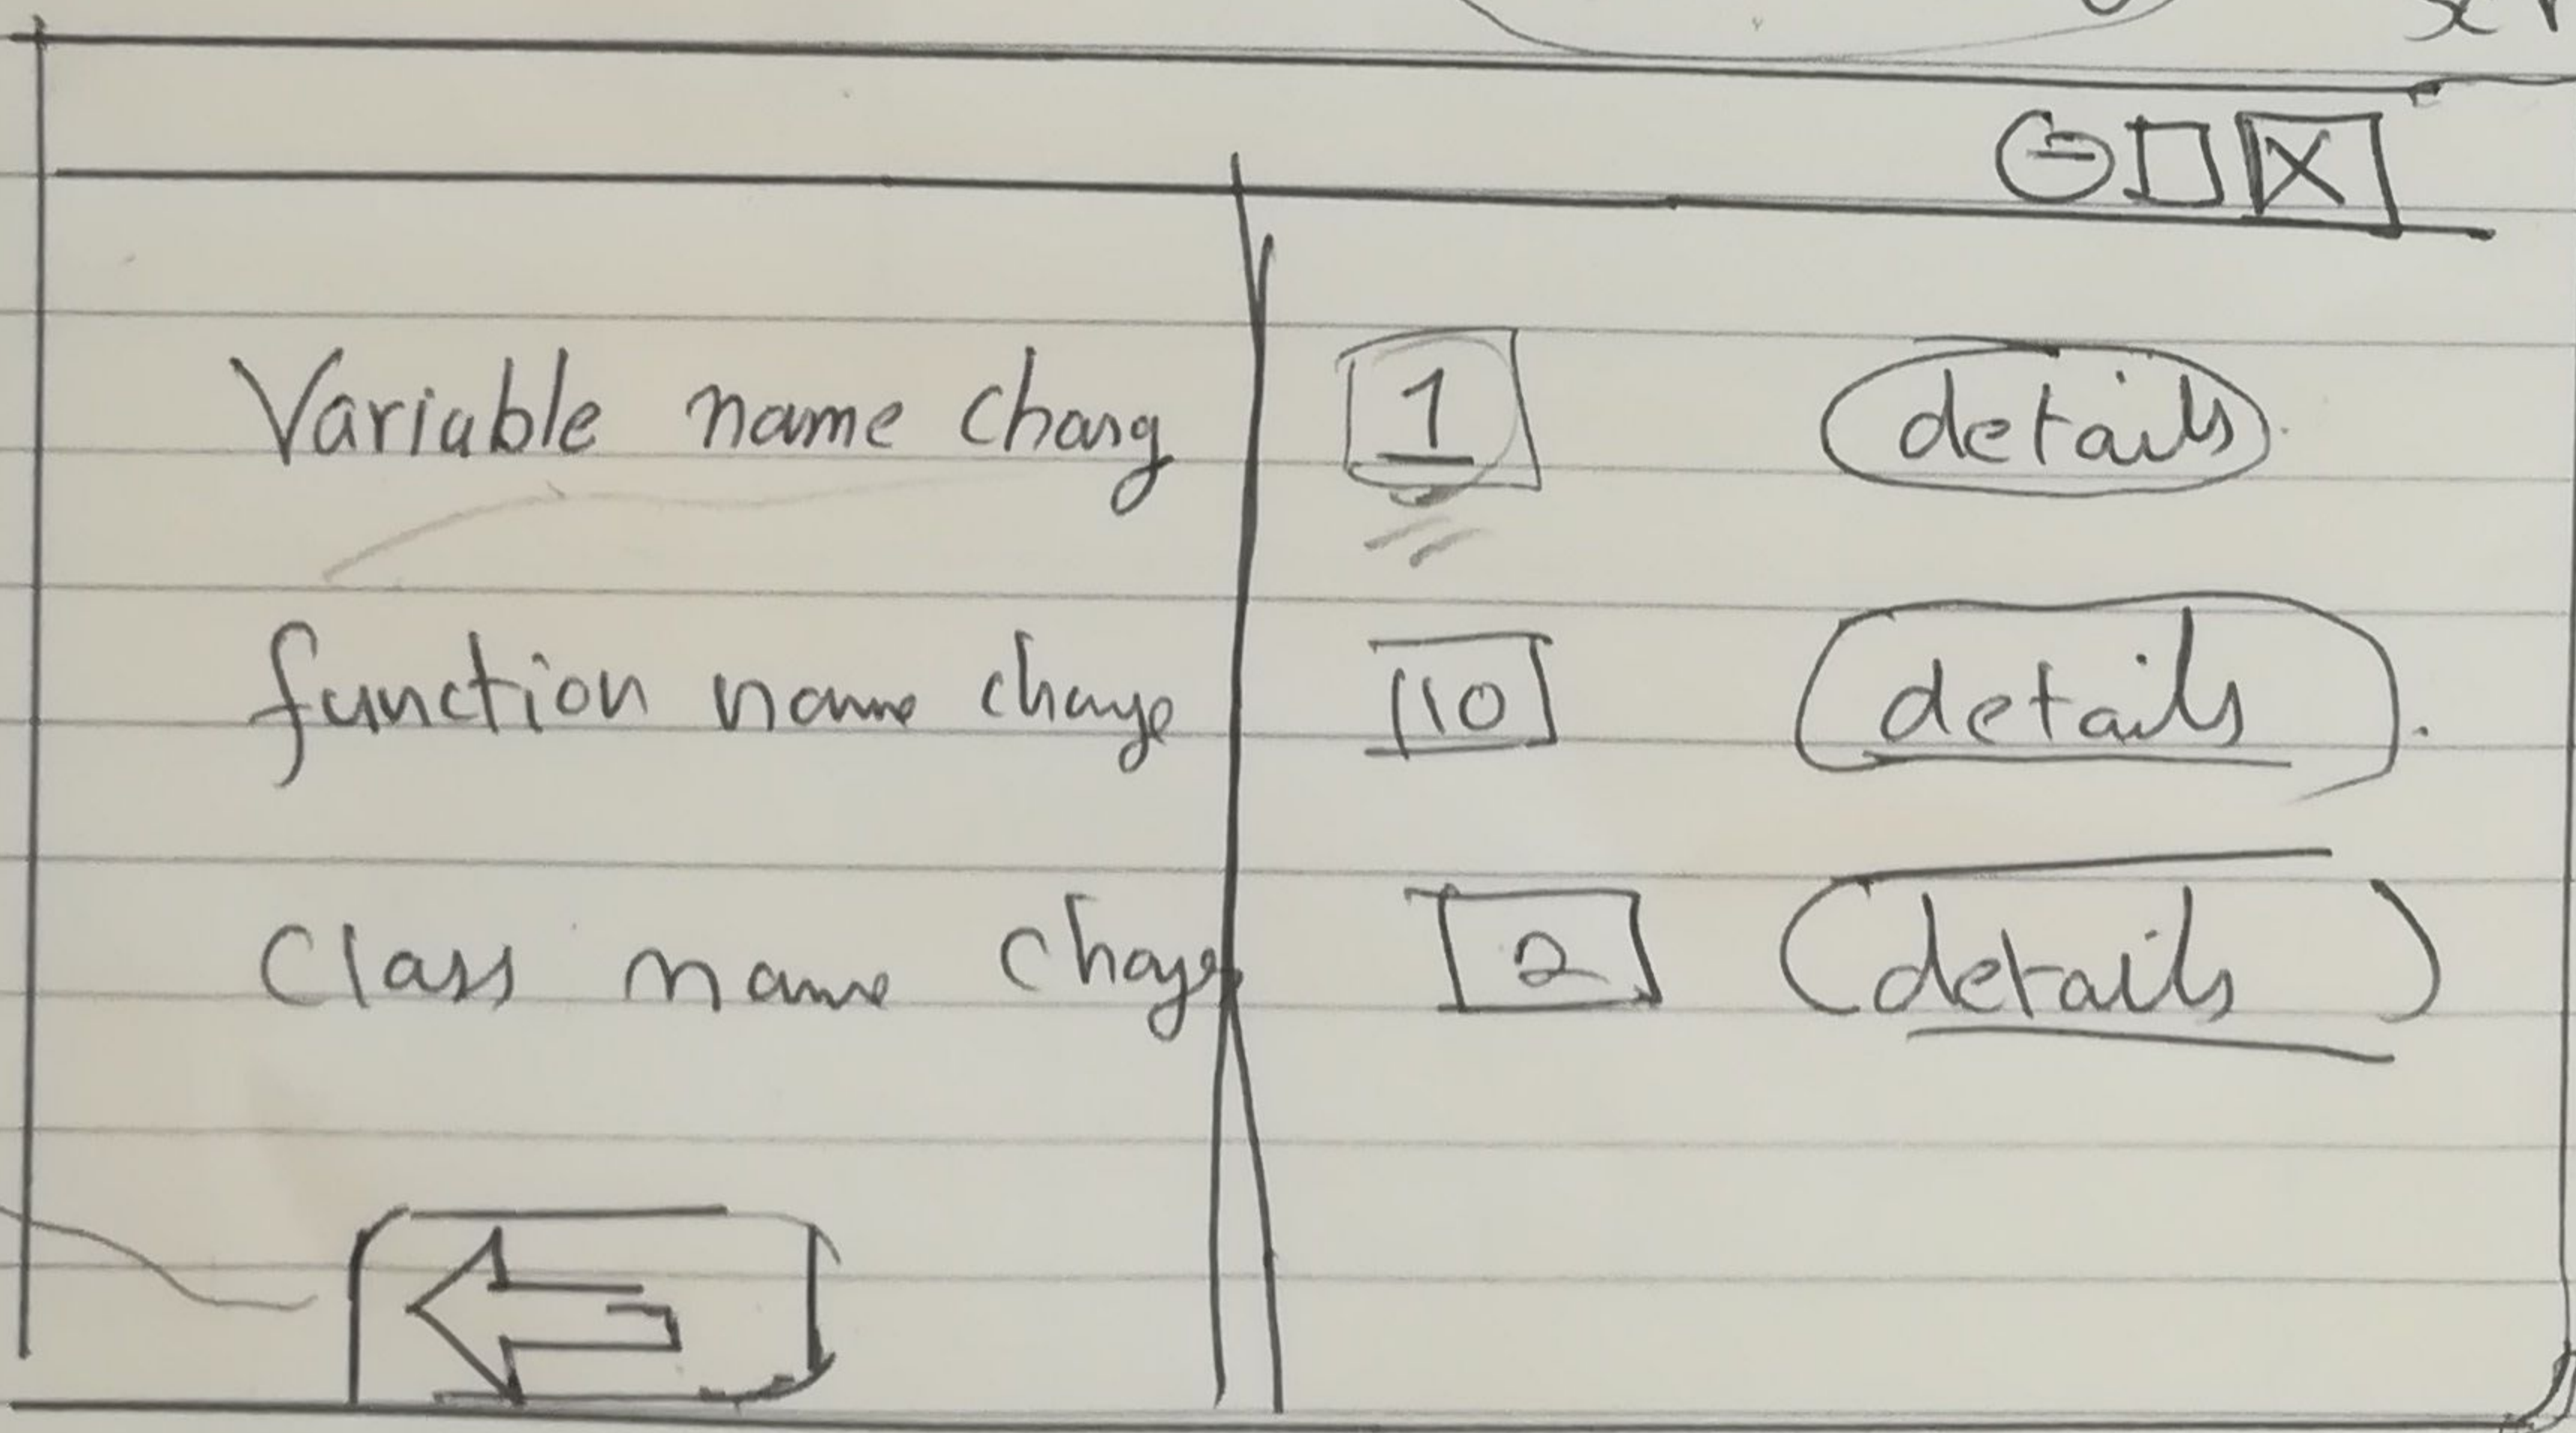 Variable name chang 1 details
function name change 10 details
Class name change 2 details